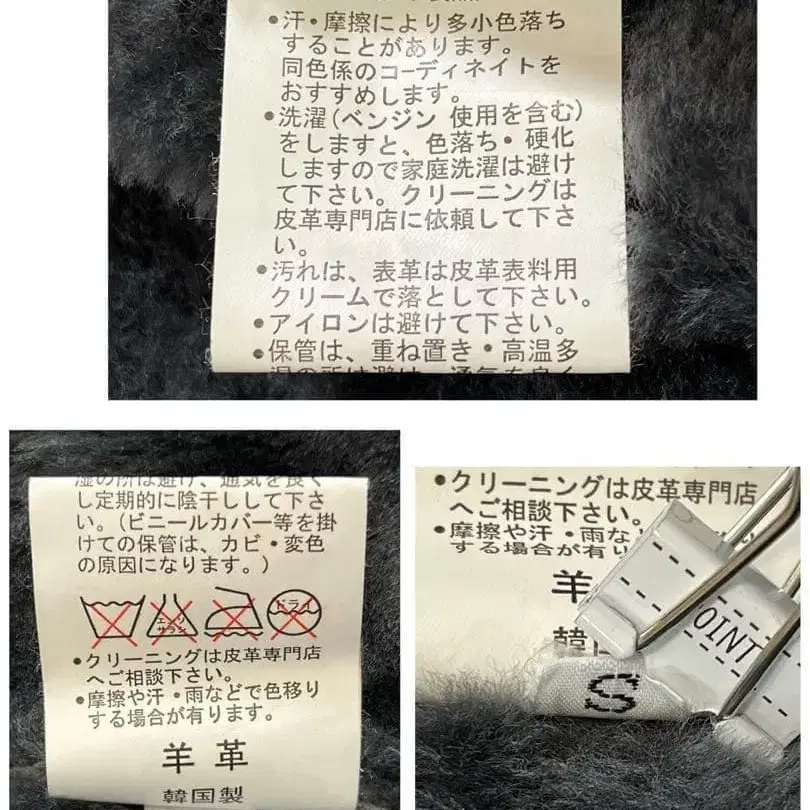 •汗・摩擦により多小色落ち
することがあります。
同色係のコーディネイトを
おすすめします。
•洗濯(ベンジン 使用を含む)
をしますと、色落ち・硬化
しますので家庭洗濯は避け
て下さい。クリーニングは
皮革専門店に依頼して下さ
い。
•汚れは、表革は皮革表料用
クリームで落として下さい。
•アイロンは避けて下さい。
•保管は、重ね置き・高温多
湿の所は避け、通気を良く
湿の所は避け、通気を良く
し定期的に陰干しして下さ
い。(ビニールカバー等を掛
けての保管は、カビ・変色
の原因になります。)
エンソ
サラシ
ドライ
•クリーニングは皮革専門店
へご相談下さい。
•摩擦や汗・雨などで色移り
する場合が有ります。
羊革
韓国製
•クリーニングは皮革専門店
へご相談下さい。
•摩擦や汗・雨な
する場合が有り
羊
韓
OINT
S